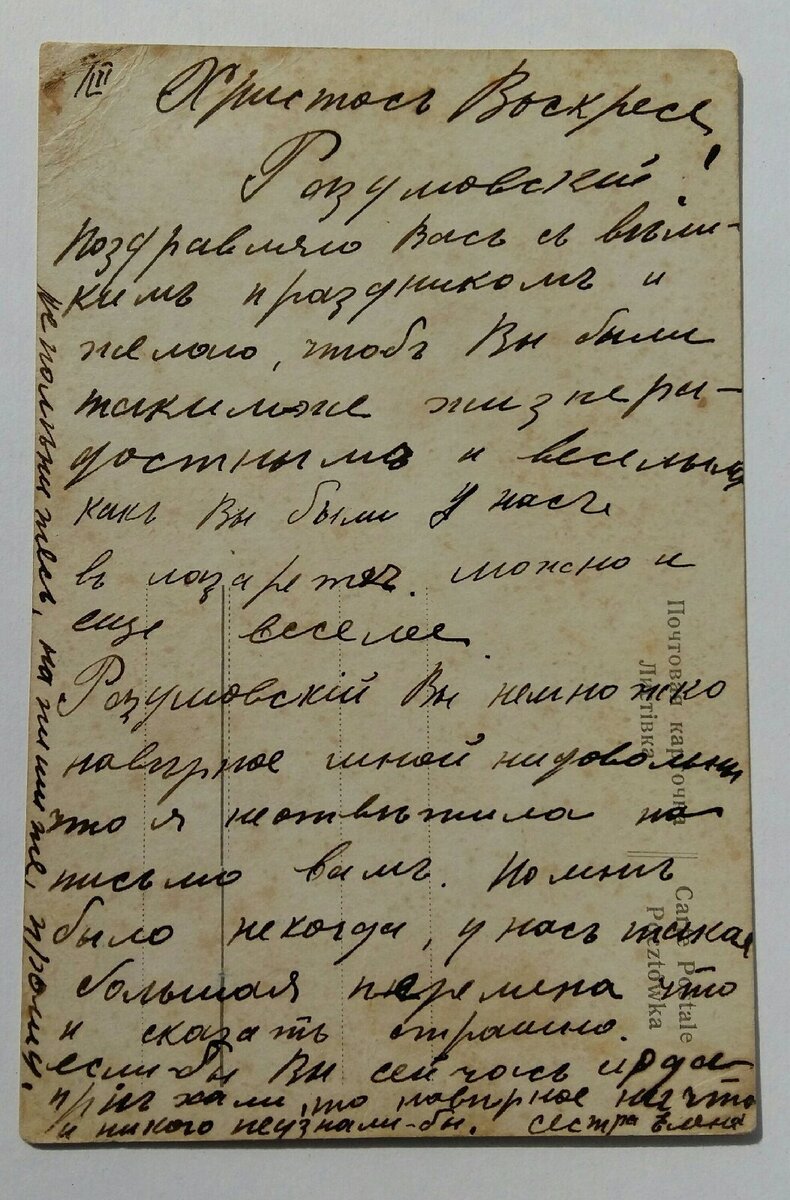 III
Христосъ Воскресе,
Разумовский!
Поздравляю Васъ съ вели-
кимъ праздникомъ и
желаю, чтобъ Вы были
такимже жизнера-
достнымъ и веселымъ
какъ Вы были у насъ
въ лазаретъ. можно и
еще веселее.
Разумовскій Вы немножко
навѣрное мной недовольны
что я неответила на
письмо вамъ. Но мнѣ
было некогда, у насъ такая
большая перемена что
и сказать страшно.
еслибы Вы сейчасъ
приѣхали, то навѣрное
и никого неузнали-бы. сестра Елена
не полѣнитесь, напишите, прошу.
Почтовая карточка
Листівка
Carte Postale
Pocztówka